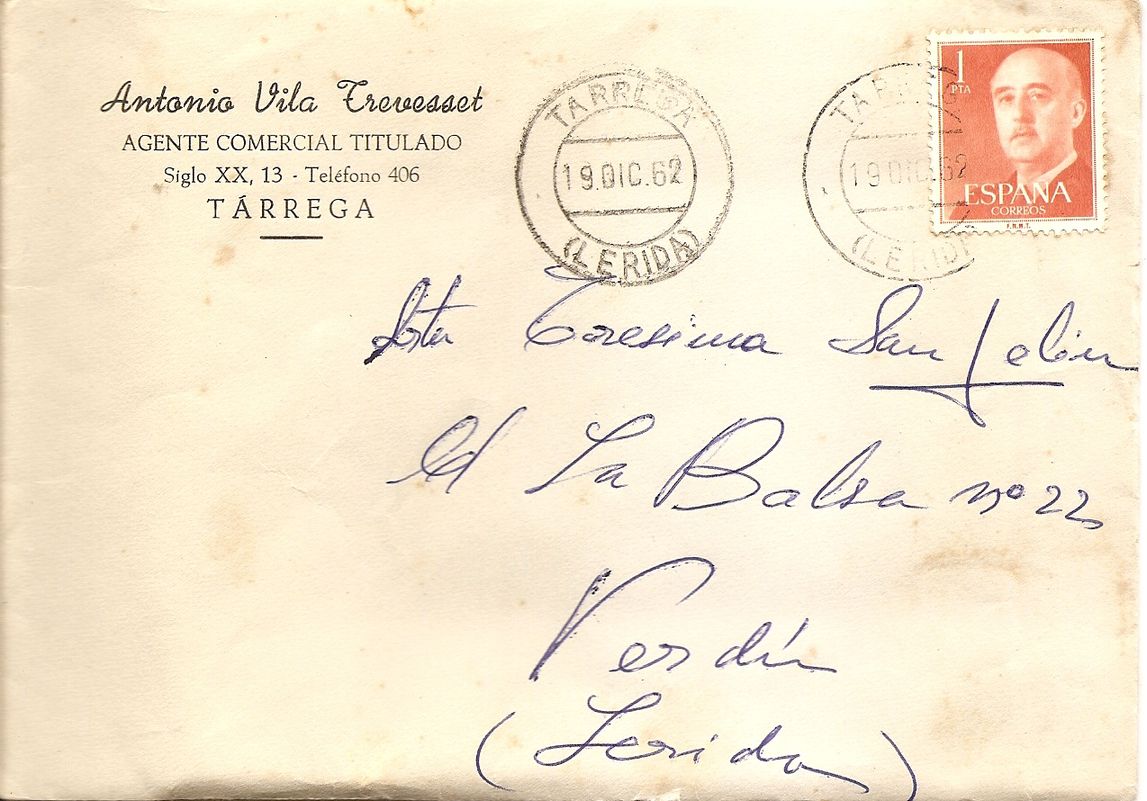 Antonio Vila Trevesset
AGENTE COMERCIAL TITULADO
Siglo XX, 13 - Teléfono 406
TÁRREGA
TARREGA
19.DIC.62
(LERIDA)
TARREG
19DIC.62
(LERID
1
PTA
ESPAÑA
CORREOS
F.N.M.T.
Srta Teresina San
La Balsa nº 22
Verdú
(Lerida)